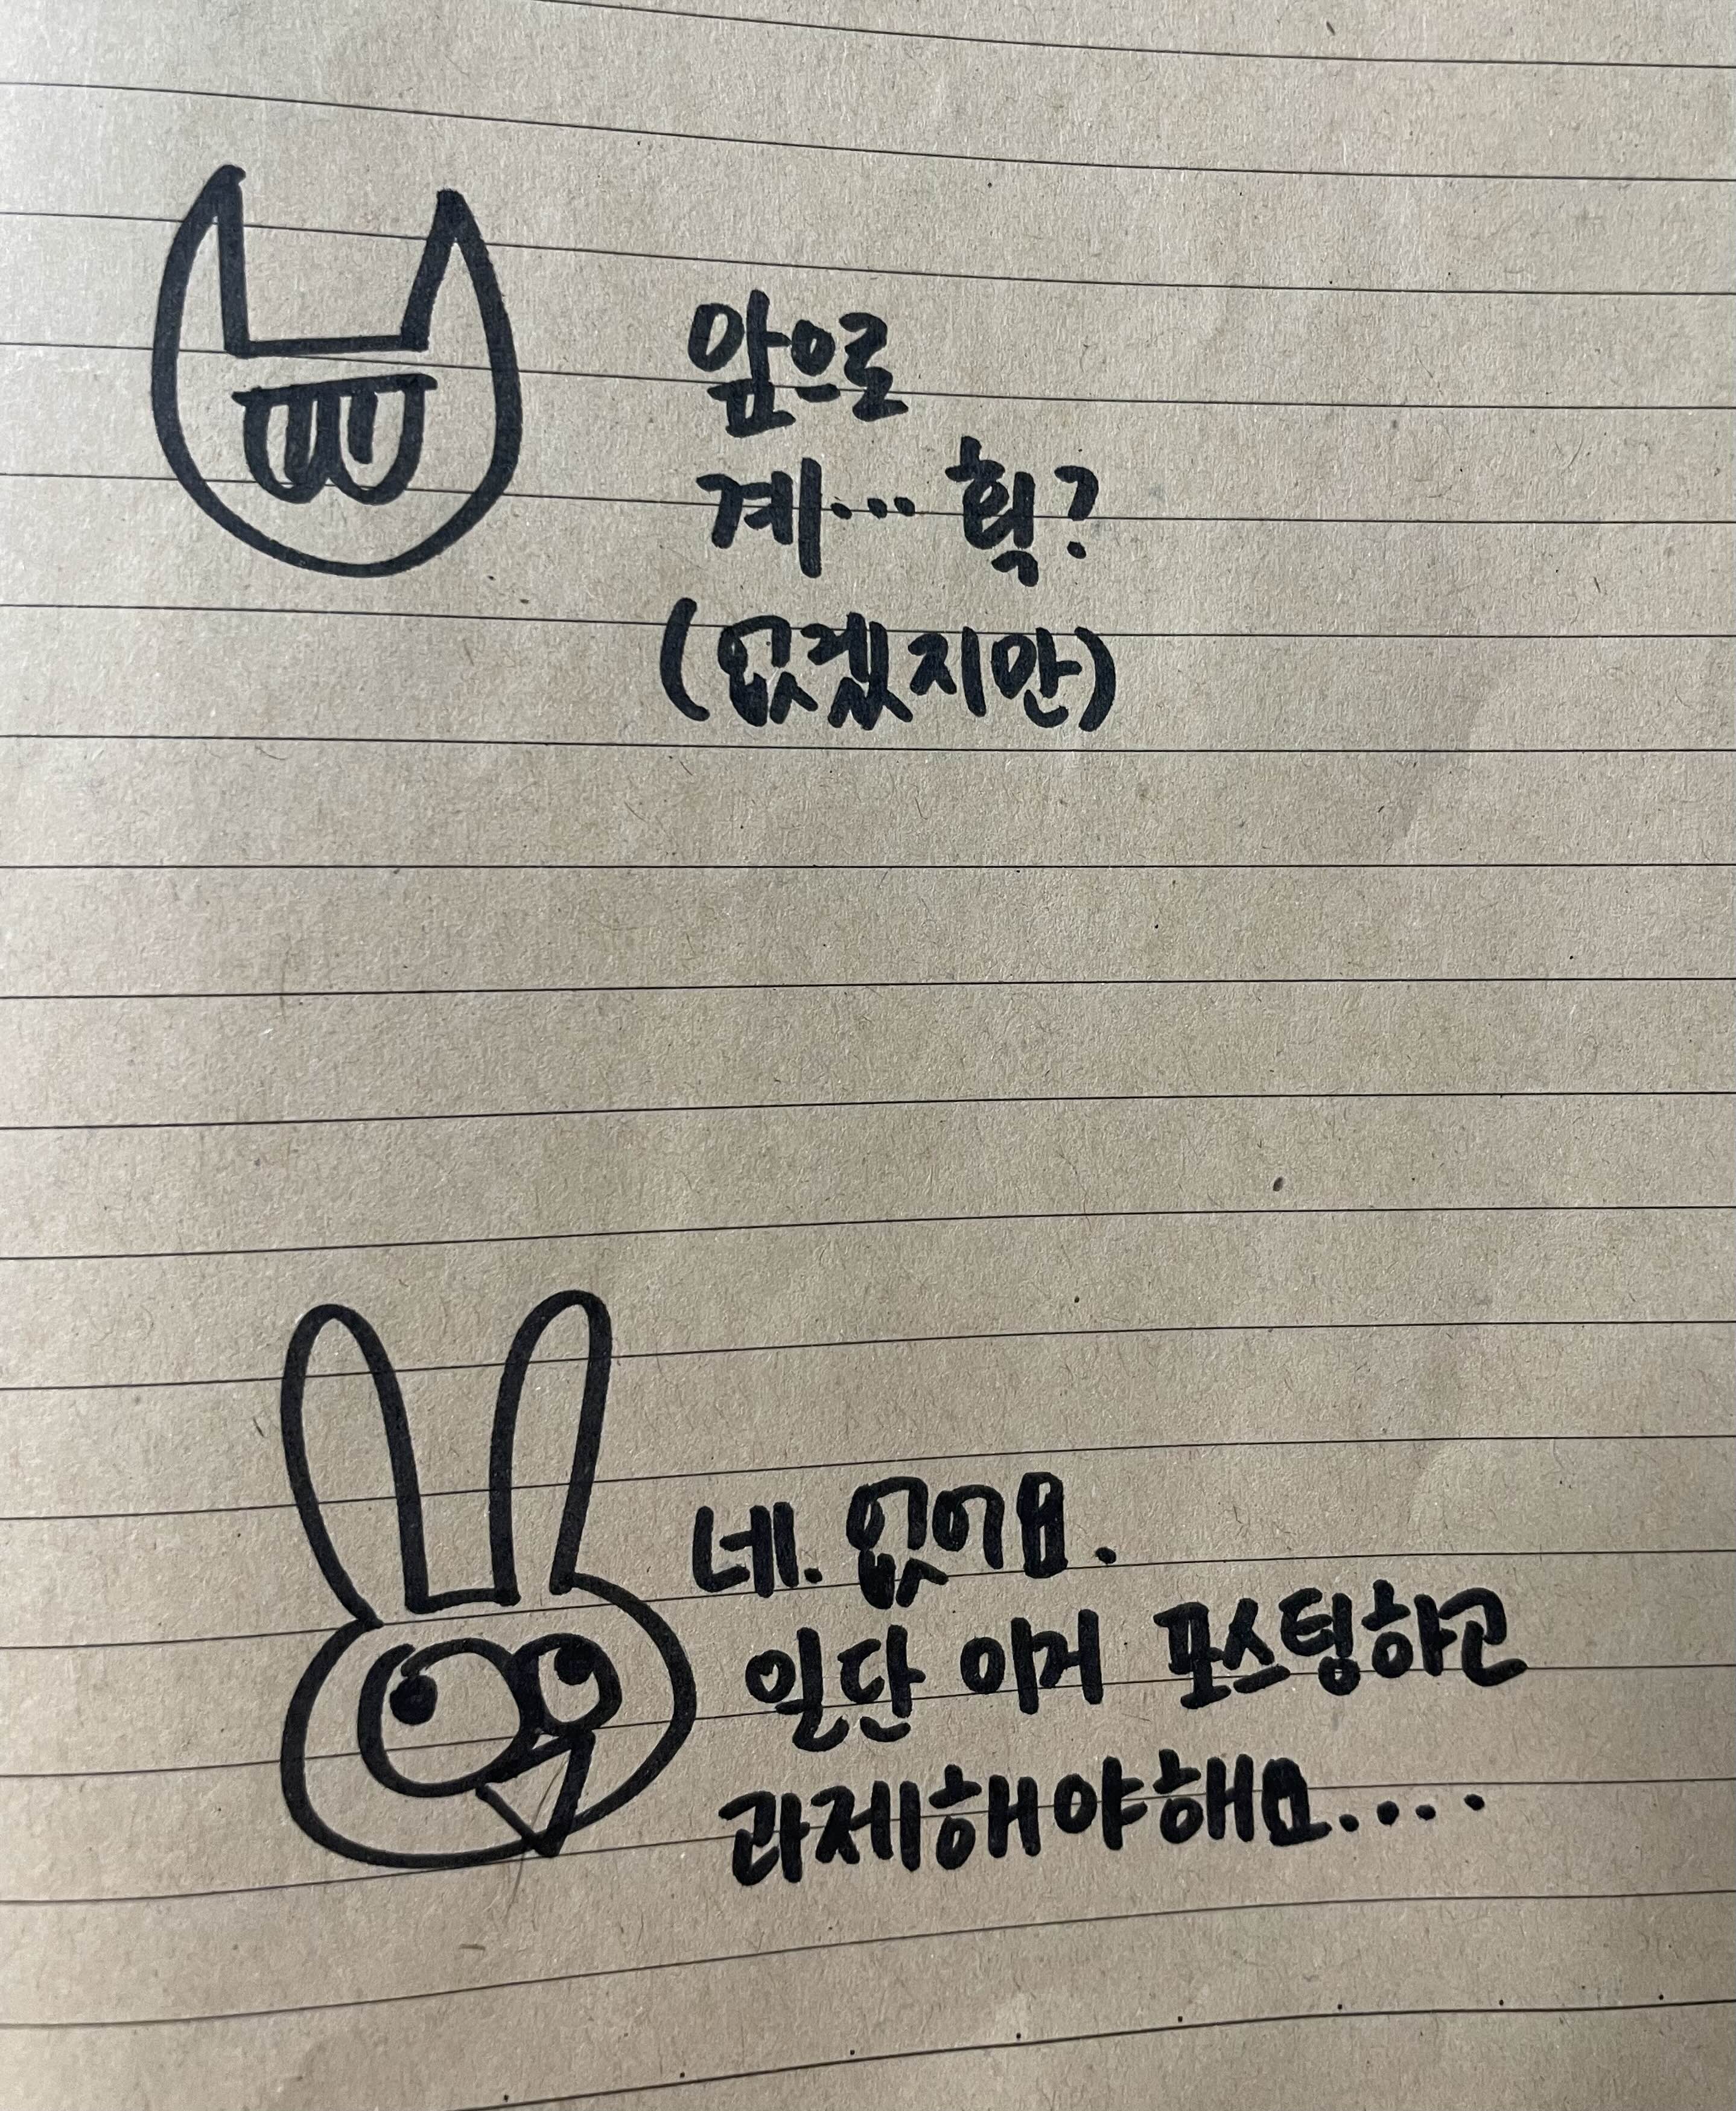 앞으로
계... 획?
(없겠지만)
네. 없어요.
일단 이거 포스팅하고
과제해야해요....